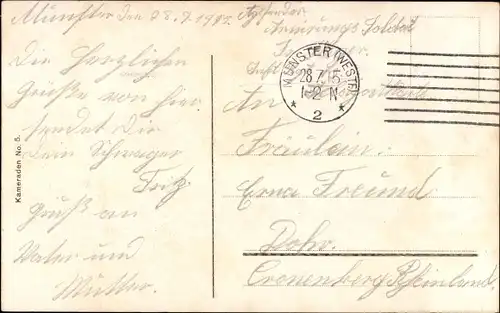 Münster den 28.7.1915
Die Herzlichen
Grüße von hier
sendet Dir
dein Schwager
Fritz
Gruß an
Vater und
Mutter.
Kameraden No. 5.
Absender
Armirungs Soldat
MÜNSTER (WESTF)
28.7.15
1-2 N
* 2 *
An
Fräulein:
Erna Freund
Dohr.
Cronenberg Rheinland.